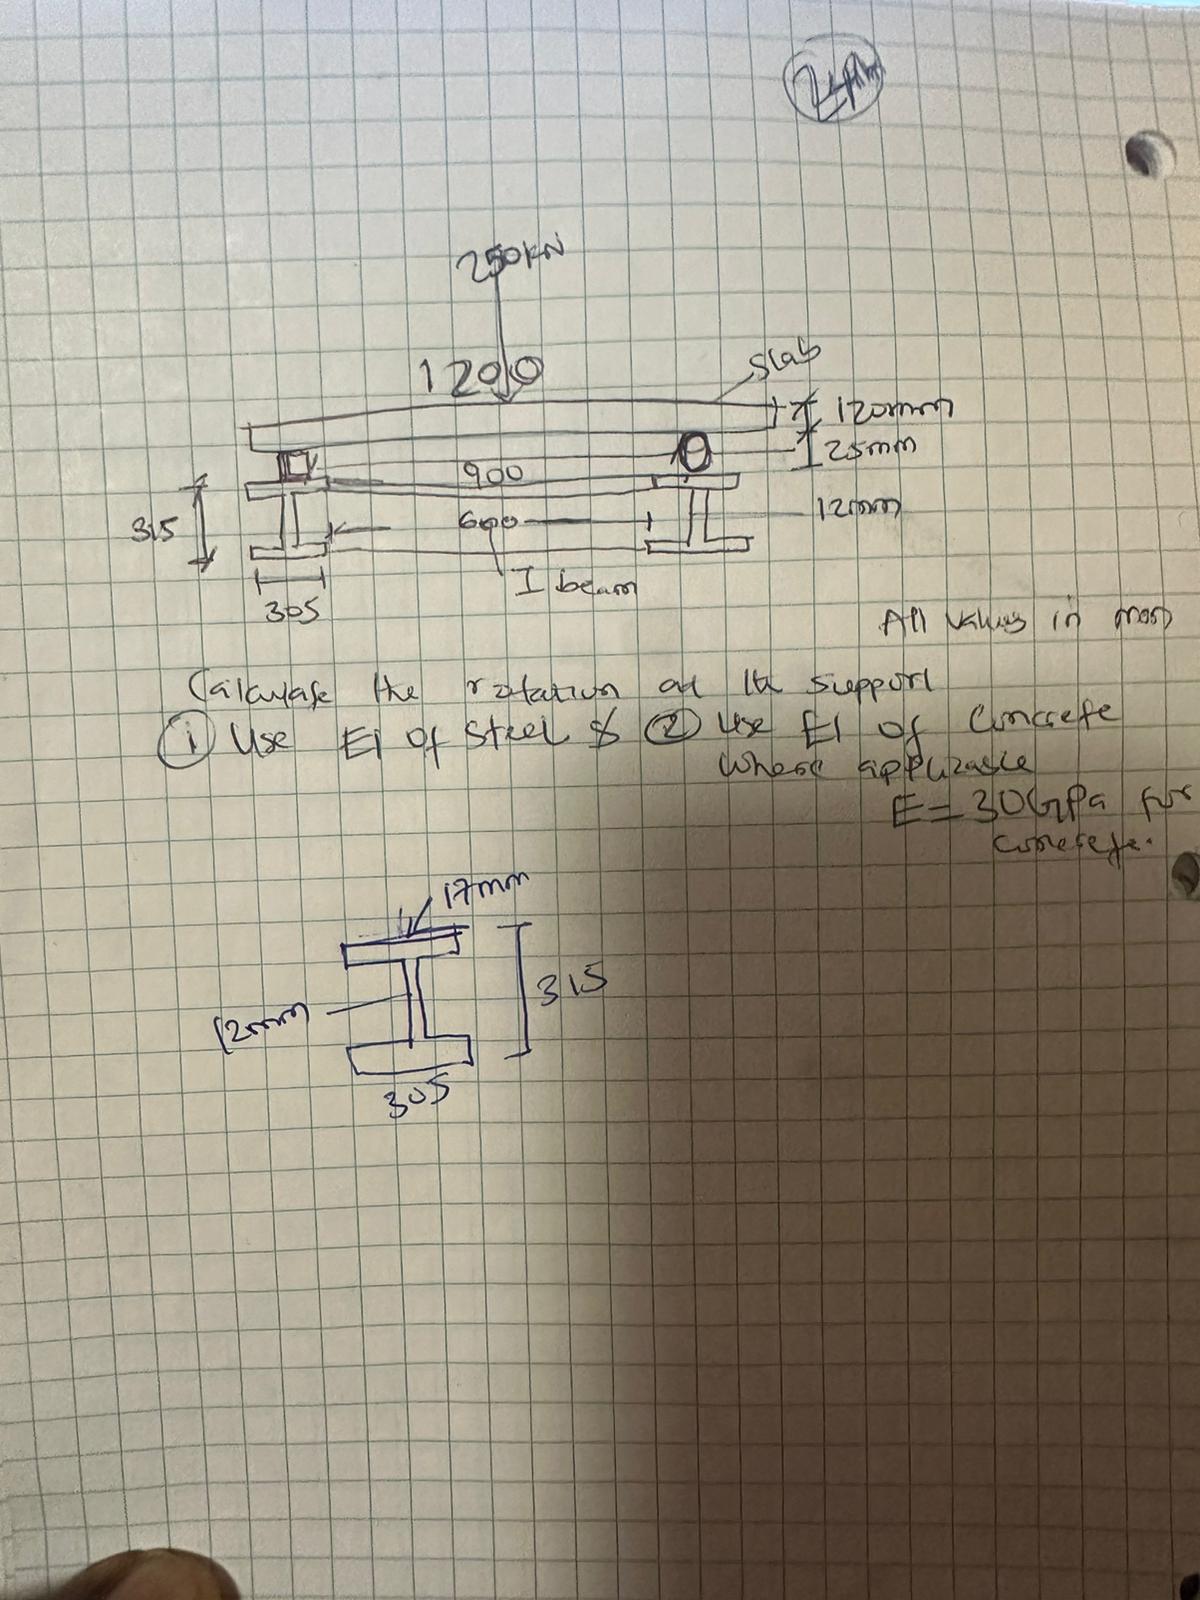 250kN
1200
Slab
120mm
25mm
900
315
600
12mm
I beam
305
All values in mm
Calculate the rotation at the support
① Use EI of Steel & ② Use EI of Concrete
where applicable
E = 30GPa for
concrete.
17mm
12mm
315
305